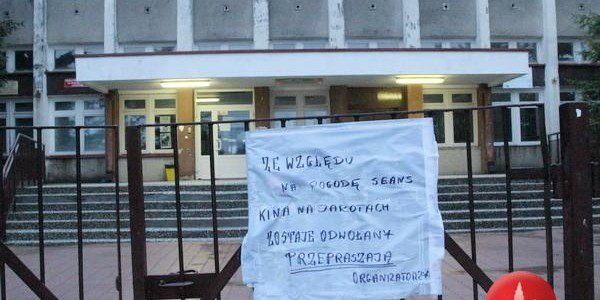 ZE WZGLĘDU
NA POGODĘ SEANS
KINA NA JAROTACH
ZOSTAJE ODWOŁANY
PRZEPRASZAJĄ
ORGANIZATORZY